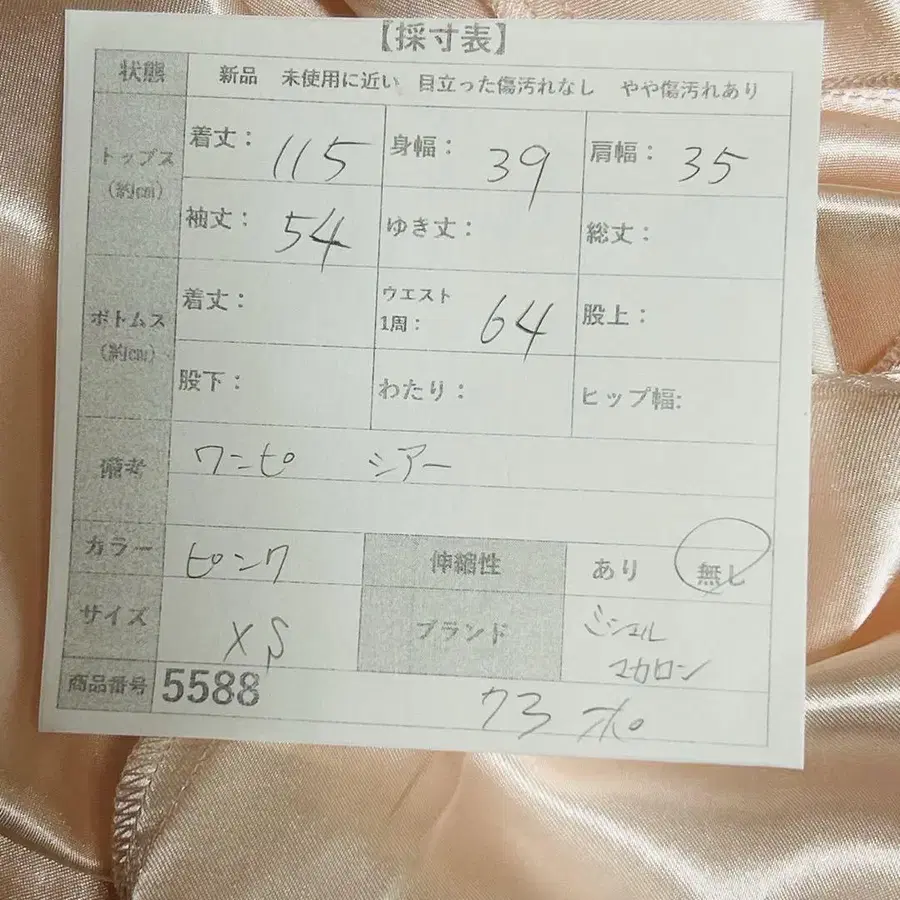 【採寸表】
状態 新品 未使用に近い 目立った傷汚れなし やや傷汚れあり
トップス (約cm)
着丈： 115 身幅： 39 肩幅： 35
袖丈： 54 ゆき丈： 総丈：
ボトムス (約cm)
着丈： ウエスト 1周： 64 股上：
股下： わたり： ヒップ幅:
備考 ワンピ シアー
カラー ピンク 伸縮性 あり 無し
サイズ XS ブランド ミシェル
マカロン
商品番号 5588 73